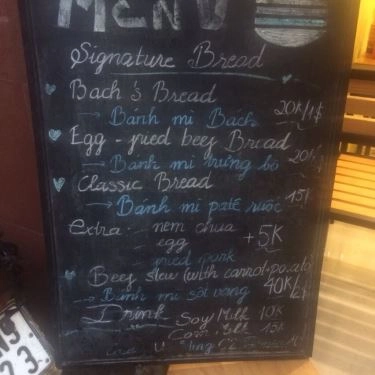 MENU
Signature Bread
Bach's Bread
→ Bánh mì Bách 20K/1$
Egg - fried beef Bread
→ Bánh mì trứng bò 20K
Classic Bread
→ Bánh mì patê ruốc 15K
Extra - nem chua
- egg +5K
- fried pork
Beef stew (with carrot+potato)
→ Bánh mì sốt vang 40K/2$
Drink Soy Milk 10K
Corn Milk 15K